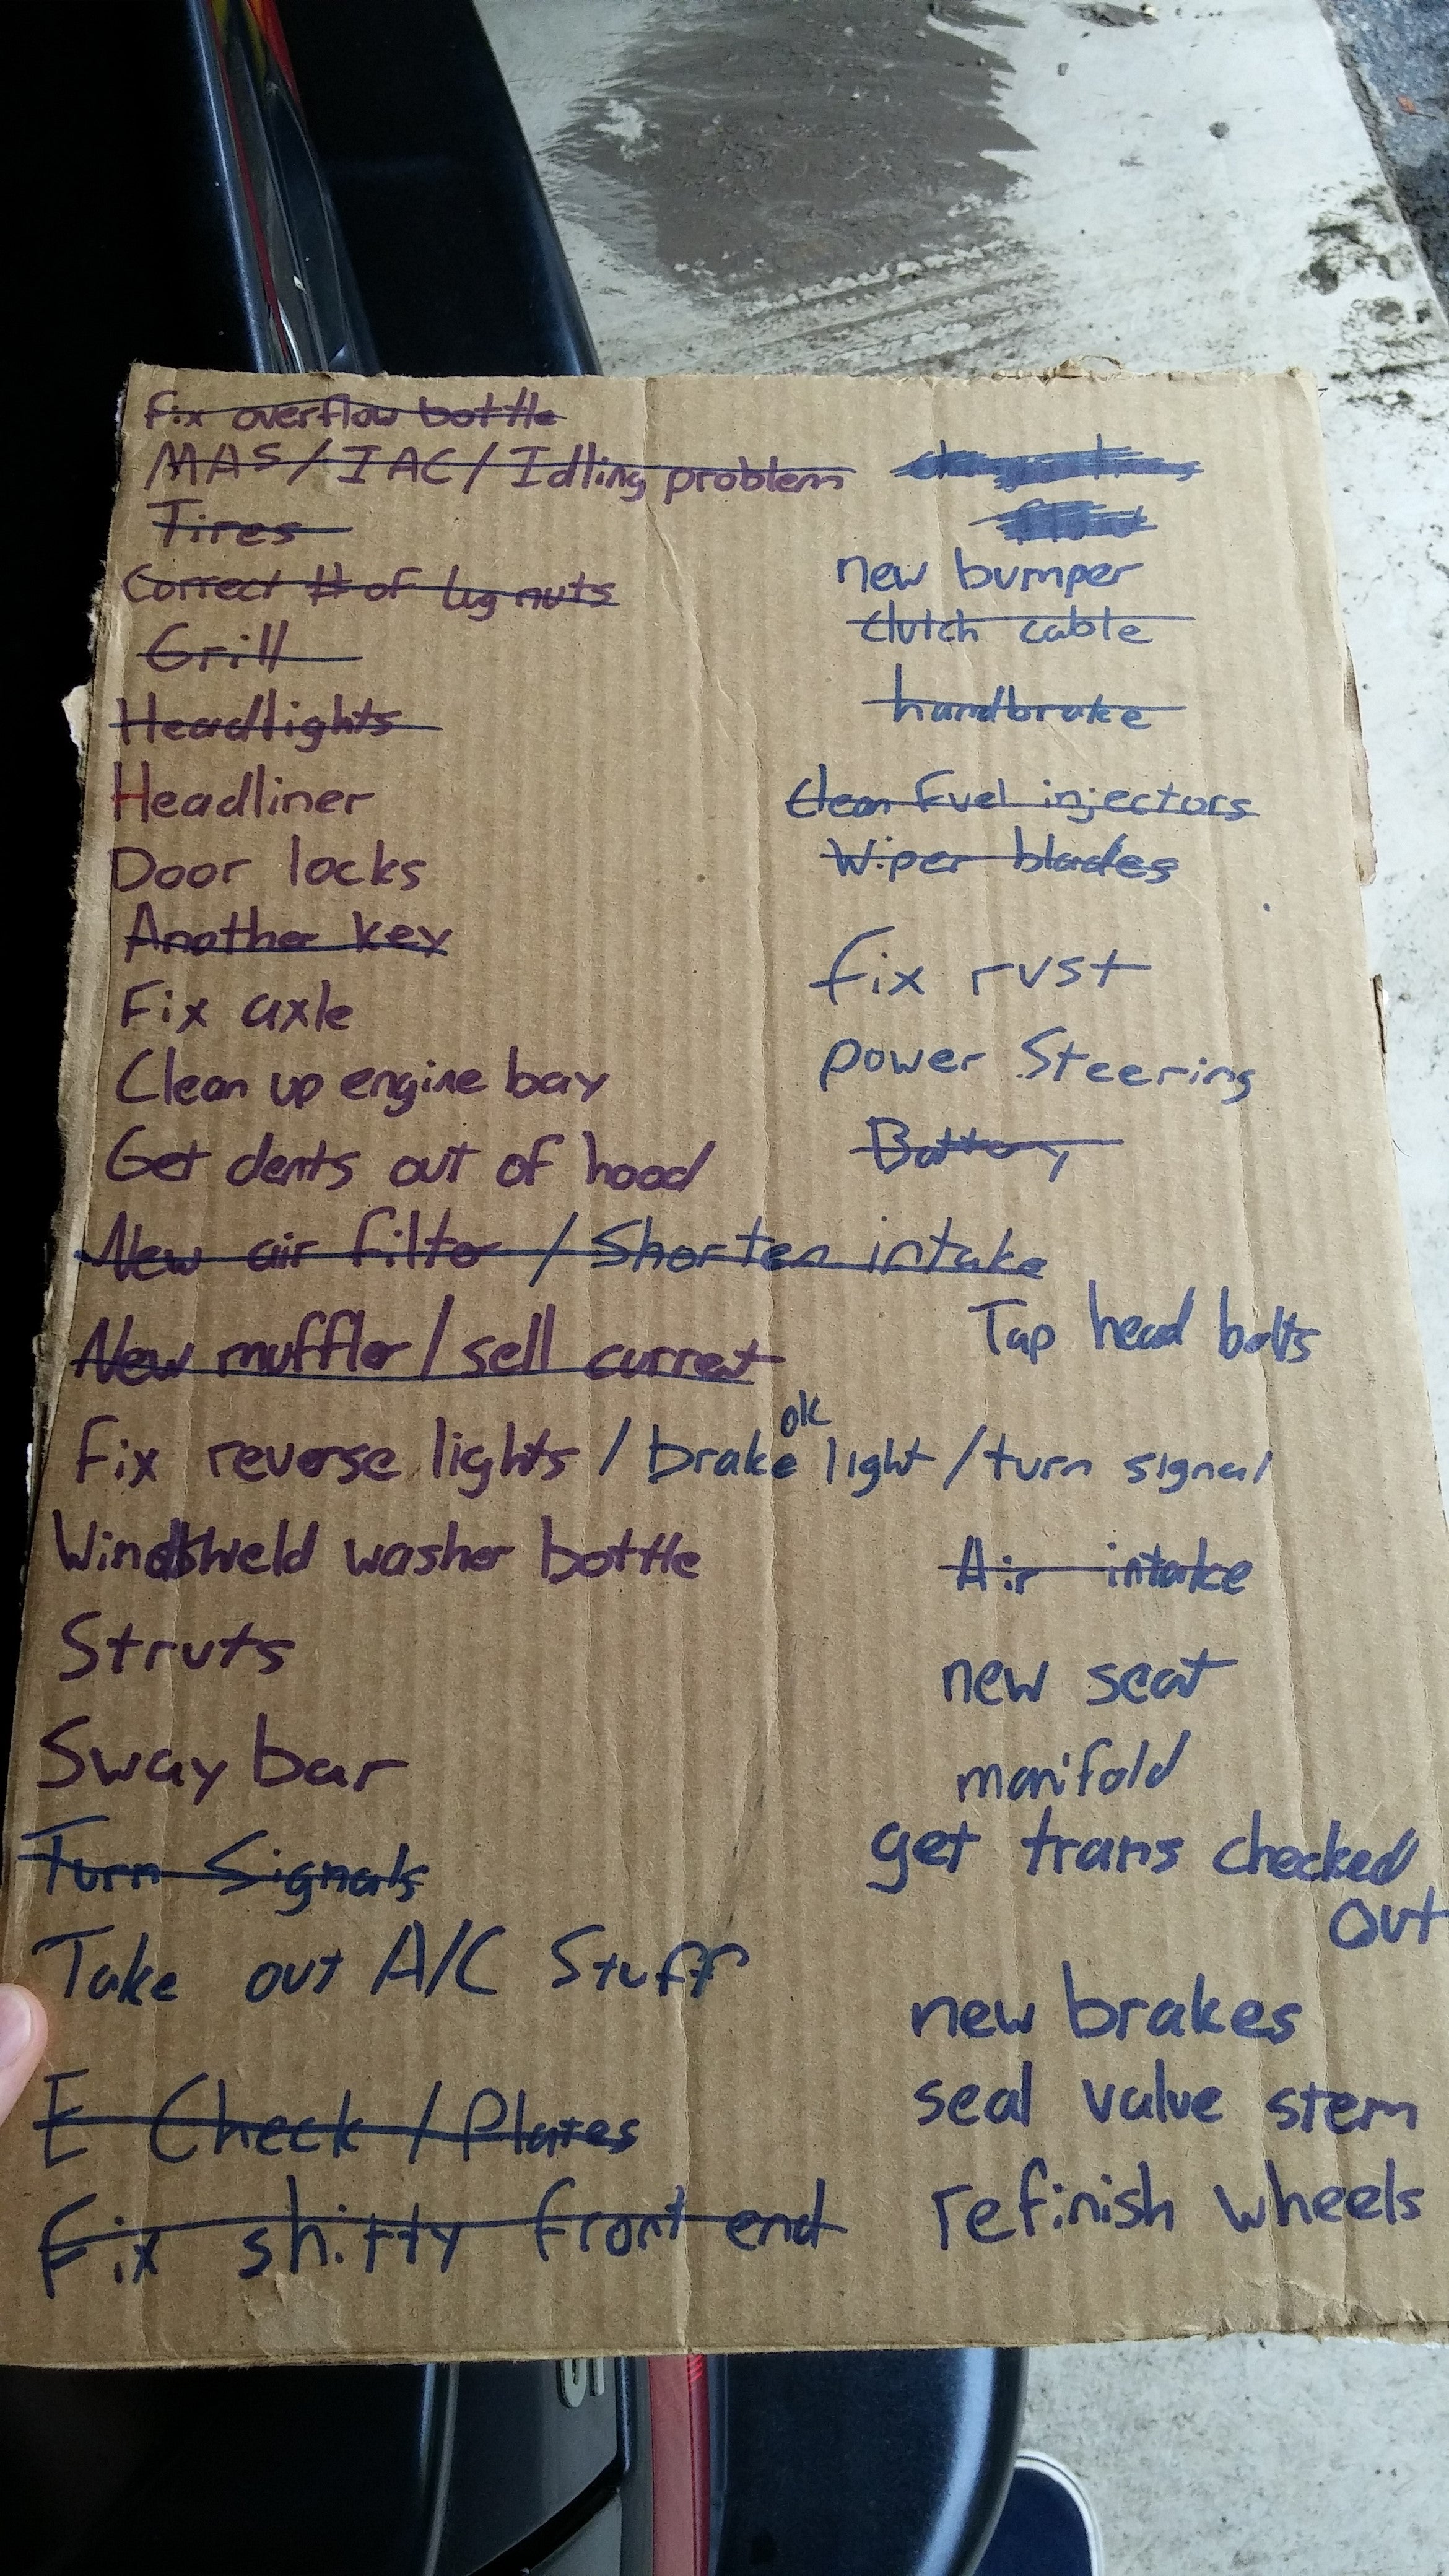 Fix overflow bottle
MAS/IAC/Idling problem
Tires
Correct # of lug nuts
Grill
Headlights
Headliner
Door locks
Another key
Fix axle
Clean up engine bay
Get dents out of hood
New air filter / Shorten intake
New muffler / sell current
Fix reverse lights / brake ok light / turn signal
Windshield washer bottle
Struts
Sway bar
Turn Signals
Take out A/C Stuff
E Check / Plates
Fix shitty front end
new bumper
clutch cable
handbrake
clean fuel injectors
Wiper blades
fix rust
power Steering
Battery
Tap head bolts
Air intake
new seat
manifold
get trans checked
out
new brakes
seal valve stem
refinish wheels